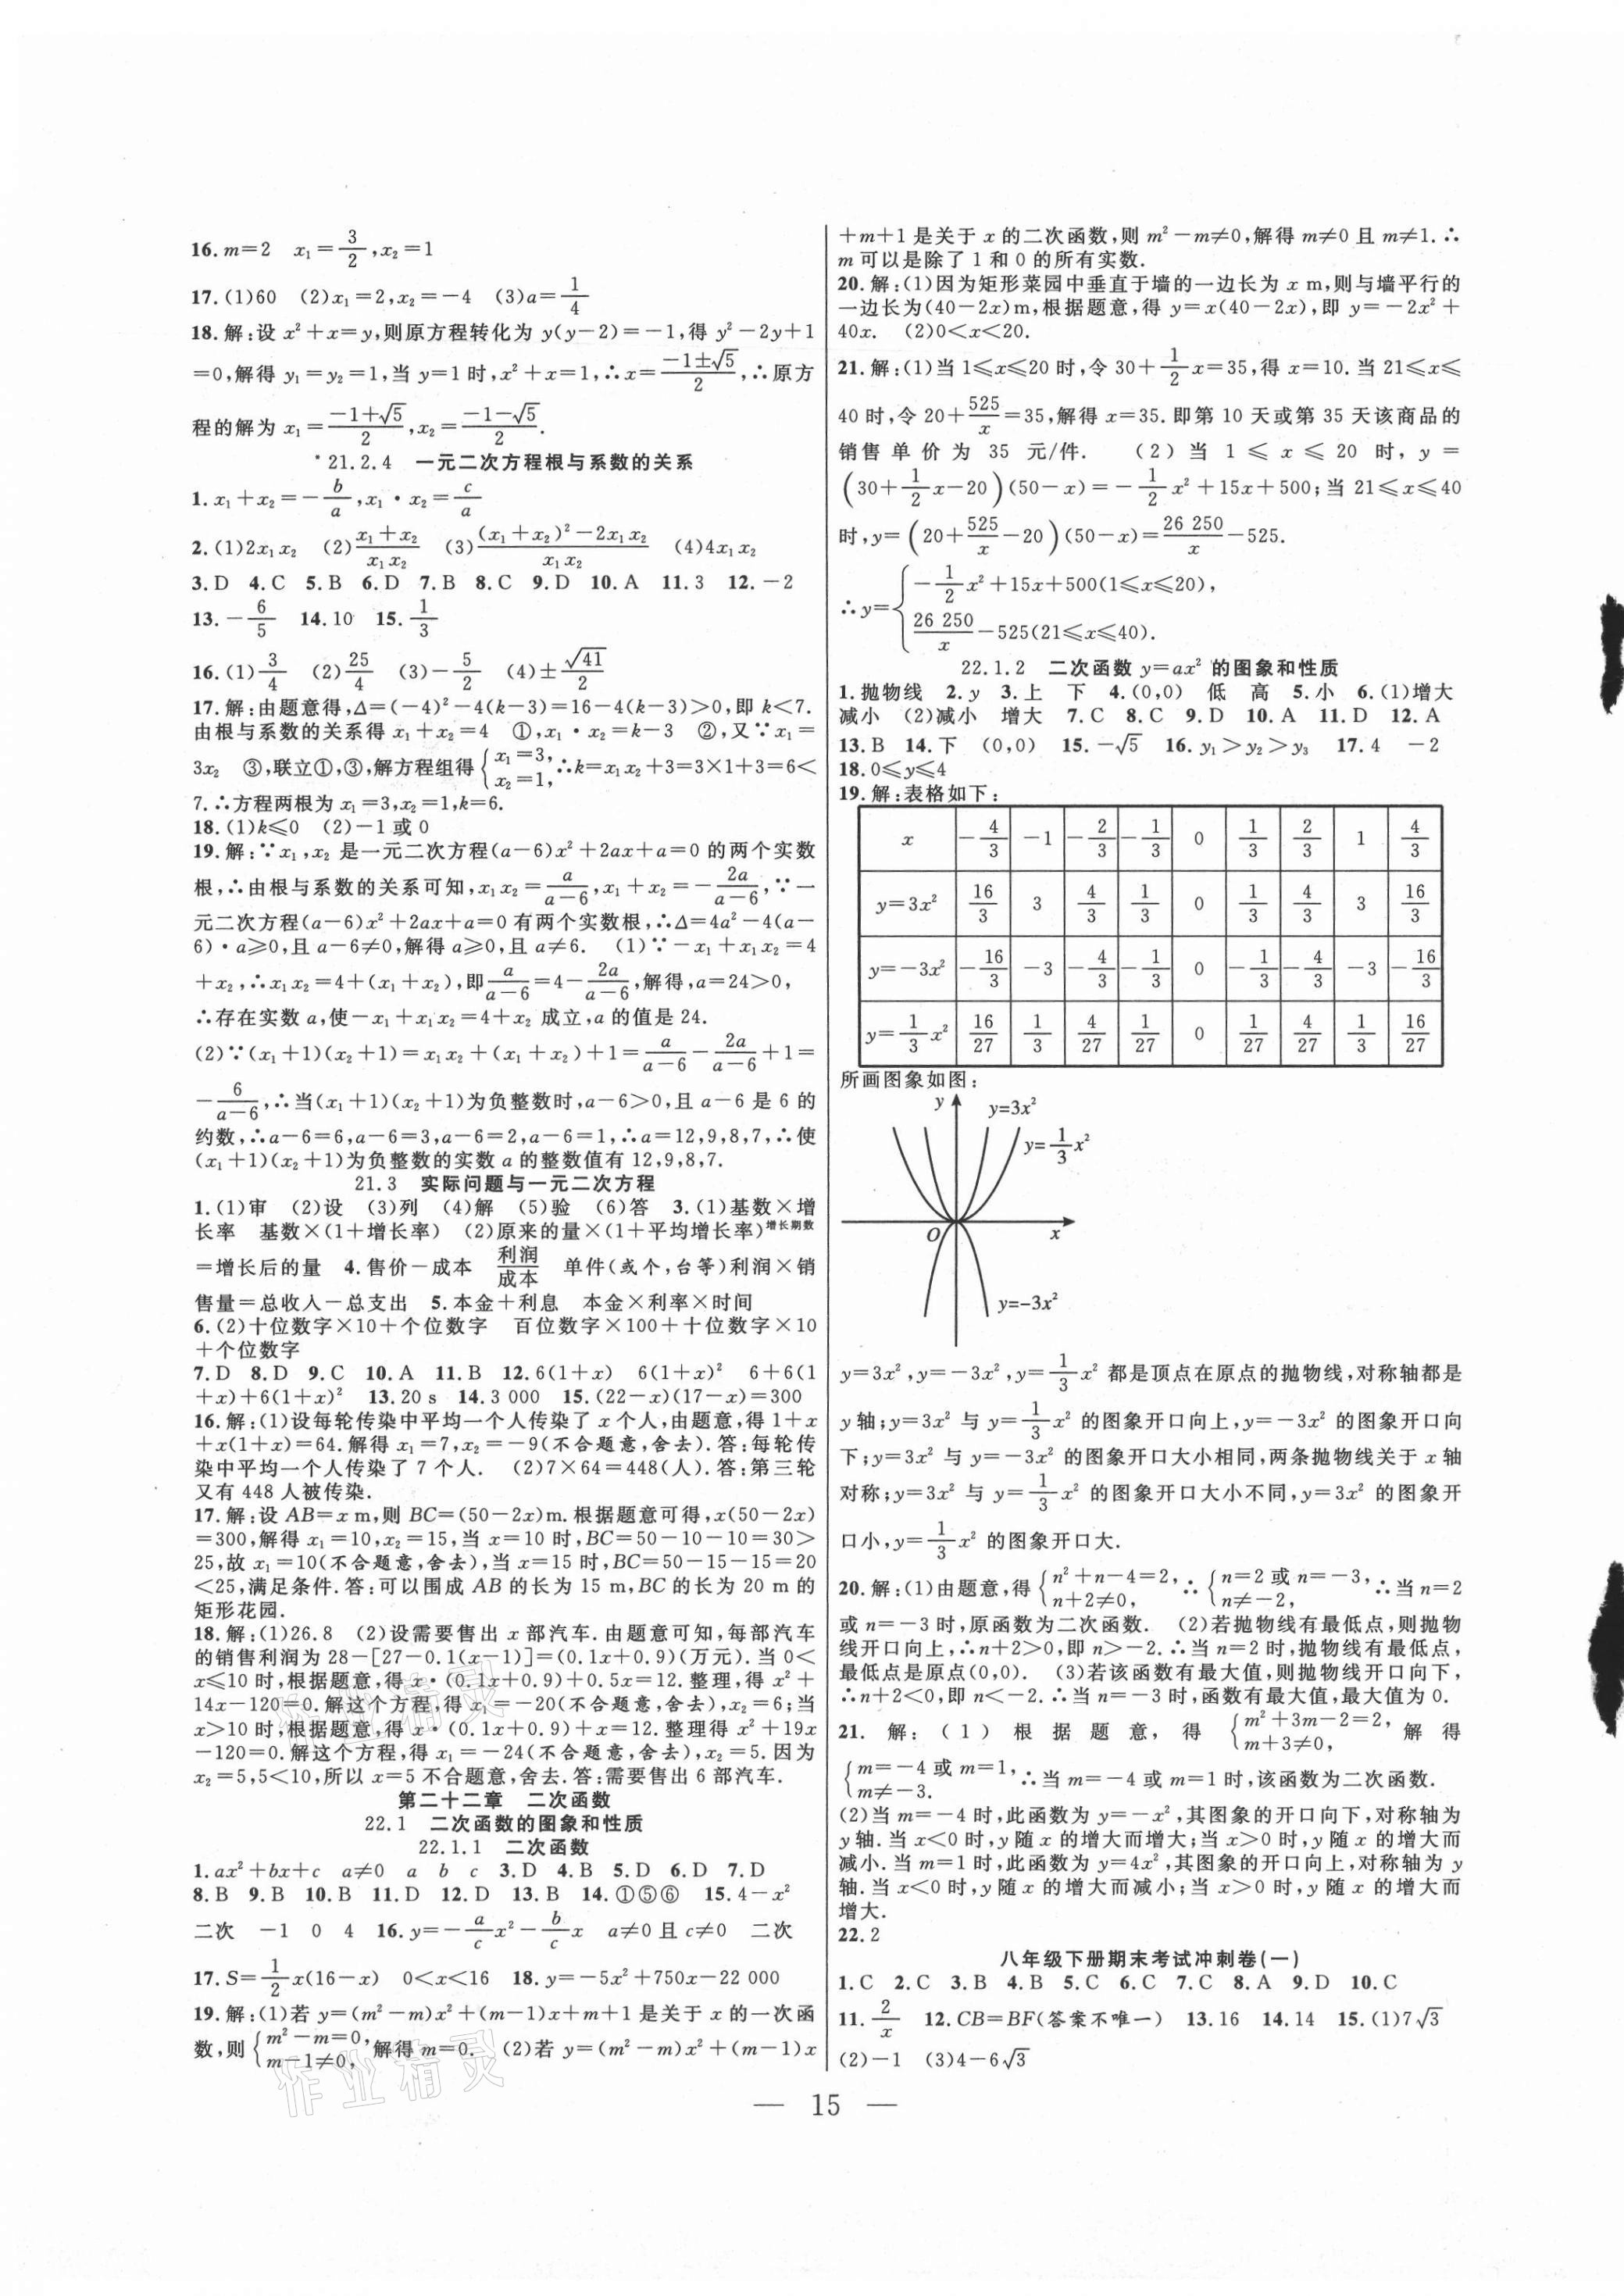 16.m=2　x₁=3/2,x₂=1
17.(1)60　(2)x₁=2,x₂=-4　(3)a=1/4
18.解:设 x²+x=y,则原方程转化为 y(y-2)=-1,得 y²-2y+1
=0,解得 y₁=y₂=1,当 y=1 时,x²+x=1,∴x=(-1±√5)/2,∴原方
程的解为 x₁=(-1+√5)/2,x₂=(-1-√5)/2.
*21.2.4　一元二次方程根与系数的关系
1.x₁+x₂=-b/a,x₁·x₂=c/a
2.(1)2x₁x₂　(2)(x₁+x₂)/(x₁x₂)　(3)((x₁+x₂)²-2x₁x₂)/(x₁x₂)　(4)4x₁x₂
3.D　4.C　5.B　6.D　7.B　8.C　9.D　10.A　11.3　12.-2
13.-6/5　14.10　15.1/3
16.(1)3/4　(2)25/4　(3)-5/2　(4)±√41/2
17.解:由题意得,Δ=(-4)²-4(k-3)=16-4(k-3)>0,即 k<7.
由根与系数的关系得 x₁+x₂=4　①,x₁·x₂=k-3　②,又∵x₁=
3x₂　③,联立①,③,解方程组得{x₁=3, x₂=1,∴k=x₁x₂+3=3×1+3=6<
7.∴方程两根为 x₁=3,x₂=1,k=6.
18.(1)k≤0　(2)-1 或 0
19.解:∵x₁,x₂ 是一元二次方程(a-6)x²+2ax+a=0 的两个实数
根,∴由根与系数的关系可知,x₁x₂=a/(a-6),x₁+x₂=-2a/(a-6),∵一
元二次方程(a-6)x²+2ax+a=0 有两个实数根,∴Δ=4a²-4(a-
6)·a≥0,且 a-6≠0,解得 a≥0,且 a≠6.　(1)∵-x₁+x₁x₂=4
+x₂,∴x₁x₂=4+(x₁+x₂),即a/(a-6)=4-2a/(a-6),解得,a=24>0,
∴存在实数 a,使-x₁+x₁x₂=4+x₂ 成立,a 的值是 24.
(2)∵(x₁+1)(x₂+1)=x₁x₂+(x₁+x₂)+1=a/(a-6)-2a/(a-6)+1=
-6/(a-6),∴当(x₁+1)(x₂+1)为负整数时,a-6>0,且 a-6 是 6 的
约数,∴a-6=6,a-6=3,a-6=2,a-6=1,∴a=12,9,8,7,∴使
(x₁+1)(x₂+1)为负整数的实数 a 的整数值有 12,9,8,7.
21.3　实际问题与一元二次方程
1.(1)审　(2)设　(3)列　(4)解　(5)验　(6)答　3.(1)基数×增
长率　基数×(1+增长率)　(2)原来的量×(1+平均增长率)^增长期数
=增长后的量　4.售价-成本　利润/成本　单件(或个,台等)利润×销
售量=总收入-总支出　5.本金+利息　本金×利率×时间
6.(2)十位数字×10+个位数字　百位数字×100+十位数字×10
+个位数字
7.D　8.D　9.C　10.A　11.B　12.6(1+x)　6(1+x)²　6+6(1
+x)+6(1+x)²　13.20 s　14.3 000　15.(22-x)(17-x)=300
16.解:(1)设每轮传染中平均一个人传染了 x 个人,由题意,得 1+x
+x(1+x)=64.解得 x₁=7,x₂=-9(不合题意,舍去).答:每轮传
染中平均一个人传染了 7 个人.　(2)7×64=448(人).答:第三轮
又有 448 人被传染.
17.解:设 AB=x m,则 BC=(50-2x)m.根据题意可得,x(50-2x)
=300,解得 x₁=10,x₂=15,当 x=10 时,BC=50-10-10=30>
25,故 x₁=10(不合题意,舍去),当 x=15 时,BC=50-15-15=20
<25,满足条件.答:可以围成 AB 的长为 15 m,BC 的长为 20 m 的
矩形花园.
18.解:(1)26.8　(2)设需要售出 x 部汽车.由题意可知,每部汽车
的销售利润为 28-[27-0.1(x-1)]=(0.1x+0.9)(万元).当 0<
x≤10 时,根据题意,得 x·(0.1x+0.9)+0.5x=12.整理,得 x²+
14x-120=0.解这个方程,得 x₁=-20(不合题意,舍去),x₂=6;当
x>10 时,根据题意,得 x·(0.1x+0.9)+x=12.整理得 x²+19x
-120=0.解这个方程,得 x₁=-24(不合题意,舍去),x₂=5.因为
x₂=5,5<10,所以 x=5 不合题意,舍去.答:需要售出 6 部汽车.
第二十二章　二次函数
22.1　二次函数的图象和性质
22.1.1　二次函数
1.ax²+bx+c　a≠0　a　b　c　3.D　4.B　5.D　6.D　7.D
8.B　9.B　10.B　11.D　12.D　13.B　14.①⑤⑥　15.4-x²
二次　-1　0　4　16.y=-a/c x²-b/c x　a≠0 且 c≠0　二次
17.S=1/2 x(16-x)　0<x<16　18.y=-5x²+750x-22 000
19.解:(1)若 y=(m²-m)x²+(m-1)x+m+1 是关于 x 的一次函
数,则{m²-m=0, m-1≠0,解得 m=0.　(2)若 y=(m²-m)x²+(m-1)x
+m+1 是关于 x 的二次函数,则 m²-m≠0,解得 m≠0 且 m≠1.∴
m 可以是除了 1 和 0 的所有实数.
20.解:(1)因为矩形菜园中垂直于墙的一边长为 x m,则与墙平行的
一边长为(40-2x)m,根据题意,得 y=x(40-2x),即 y=-2x²+
40x.　(2)0<x<20.
21.解:(1)当 1≤x≤20 时,令 30+1/2 x=35,得 x=10.当 21≤x≤
40 时,令 20+525/x=35,解得 x=35.即第 10 天或第 35 天该商品的
销售单价为 35 元/件.　(2)当 1≤x≤20 时,y=
(30+1/2 x-20)(50-x)=-1/2 x²+15x+500;当 21≤x≤40
时,y=(20+525/x-20)(50-x)=26 250/x-525.
∴y={-1/2 x²+15x+500(1≤x≤20),
26 250/x-525(21≤x≤40).
22.1.2　二次函数 y=ax² 的图象和性质
1.抛物线　2.y　3.上　下　4.(0,0)　低　高　5.小　6.(1)增大
减小　(2)减小　增大　7.C　8.C　9.D　10.A　11.D　12.A
13.B　14.下　(0,0)　15.-√5　16.y₁>y₂>y₃　17.4　-2
18.0≤y≤4
19.解:表格如下:
x　-4/3　-1　-2/3　-1/3　0　1/3　2/3　1　4/3
y=3x²　16/3　3　4/3　1/3　0　1/3　4/3　3　16/3
y=-3x²　-16/3　-3　-4/3　-1/3　0　-1/3　-4/3　-3　-16/3
y=1/3 x²　16/27　1/3　4/27　1/27　0　1/27　4/27　1/3　16/27
所画图象如图:
y　y=3x²
y=1/3 x²
O　x
y=-3x²
y=3x²,y=-3x²,y=1/3 x² 都是顶点在原点的抛物线,对称轴都是
y 轴;y=3x² 与 y=1/3 x² 的图象开口向上,y=-3x² 的图象开口向
下;y=3x² 与 y=-3x² 的图象开口大小相同,两条抛物线关于 x 轴
对称;y=3x² 与 y=1/3 x² 的图象开口大小不同,y=3x² 的图象开
口小,y=1/3 x² 的图象开口大.
20.解:(1)由题意,得{n²+n-4=2, n+2≠0,∴{n=2 或 n=-3, n≠-2,∴当 n=2
或 n=-3 时,原函数为二次函数.　(2)若抛物线有最低点,则抛物
线开口向上,∴n+2>0,即 n>-2.∴当 n=2 时,抛物线有最低点,
最低点是原点(0,0).　(3)若该函数有最大值,则抛物线开口向下,
∴n+2<0,即 n<-2.∴当 n=-3 时,函数有最大值,最大值为 0.
21.解:(1)根据题意,得{m²+3m-2=2, m+3≠0,解得
{m=-4 或 m=1, m≠-3.∴当 m=-4 或 m=1 时,该函数为二次函数.
(2)当 m=-4 时,此函数为 y=-x²,其图象的开口向下,对称轴为
y 轴.当 x<0 时,y 随 x 的增大而增大;当 x>0 时,y 随 x 的增大而
减小.当 m=1 时,此函数为 y=4x²,其图象的开口向上,对称轴为 y
轴.当 x<0 时,y 随 x 的增大而减小;当 x>0 时,y 随 x 的增大而
增大.
22.2
八年级下册期末考试冲刺卷(一)
1.C　2.C　3.B　4.B　5.C　6.C　7.C　8.A　9.D　10.C
11.2/x　12.CB=BF(答案不唯一)　13.16　14.14　15.(1)7√3
(2)-1　(3)4-6√3
— 15 —
作业精灵
作业精灵